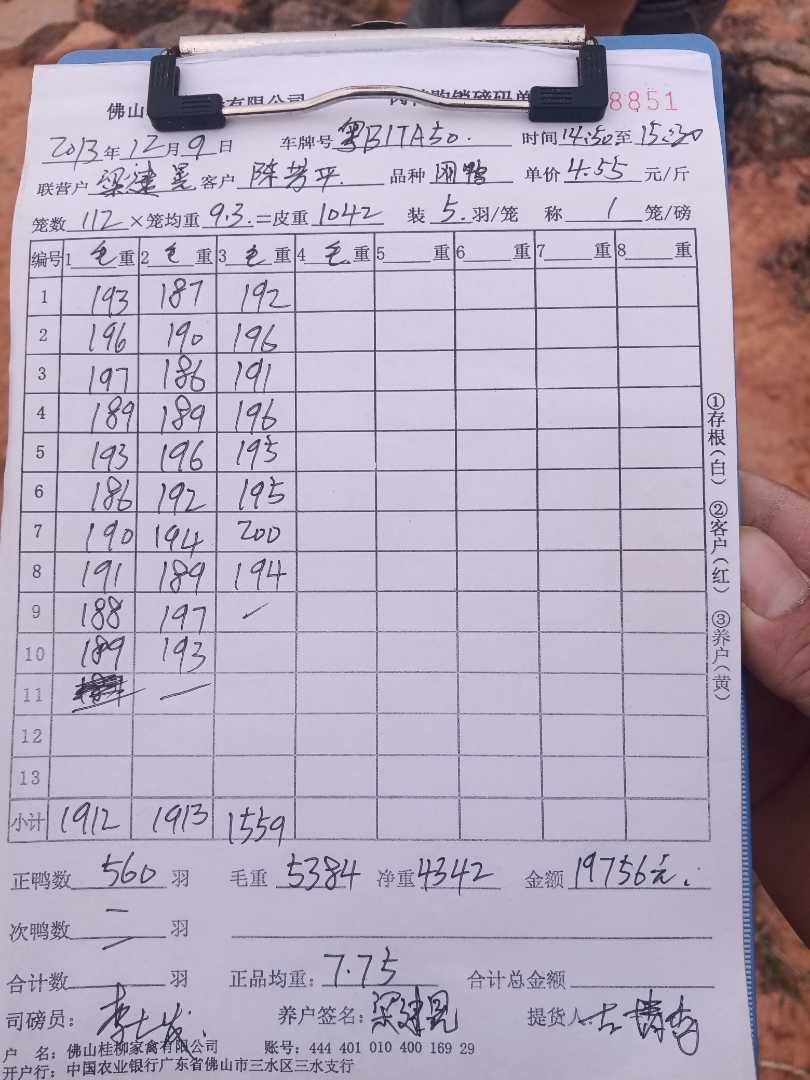 佛山 有限公司 购销磅码单 8851
2013年12月9日 车牌号 粤B1TA50. 时间14:50至15:30
联营户 梁建昆 客户 陈芳平. 品种 单价4.55元/斤
笼数112×笼均重9.3.=皮重1042 装5.羽/笼 称1笼/磅
编号 1毛重 2毛重 3毛重 4毛重 5重 6重 7重 8重
1 193 187 192
2 196 190 196
3 197 186 191
4 189 189 196
5 193 196 195
6 186 192 195
7 190 194 200
8 191 189 194
9 188 197
10 189 193
11
12
13
小计 1912 1913 1559
正鸭数560羽 毛重5384 净重4342 金额19756元.
次鸭数 羽
合计数 羽 正品均重:7.75 合计总金额
司磅员: 养户签名:梁建昆 提货人
户 名:佛山桂柳家禽有限公司 账号:444 401 010 400 169 29
开户行:中国农业银行广东省佛山市三水区三水支行
①存根(白) ②客户(红) ③养户(黄)